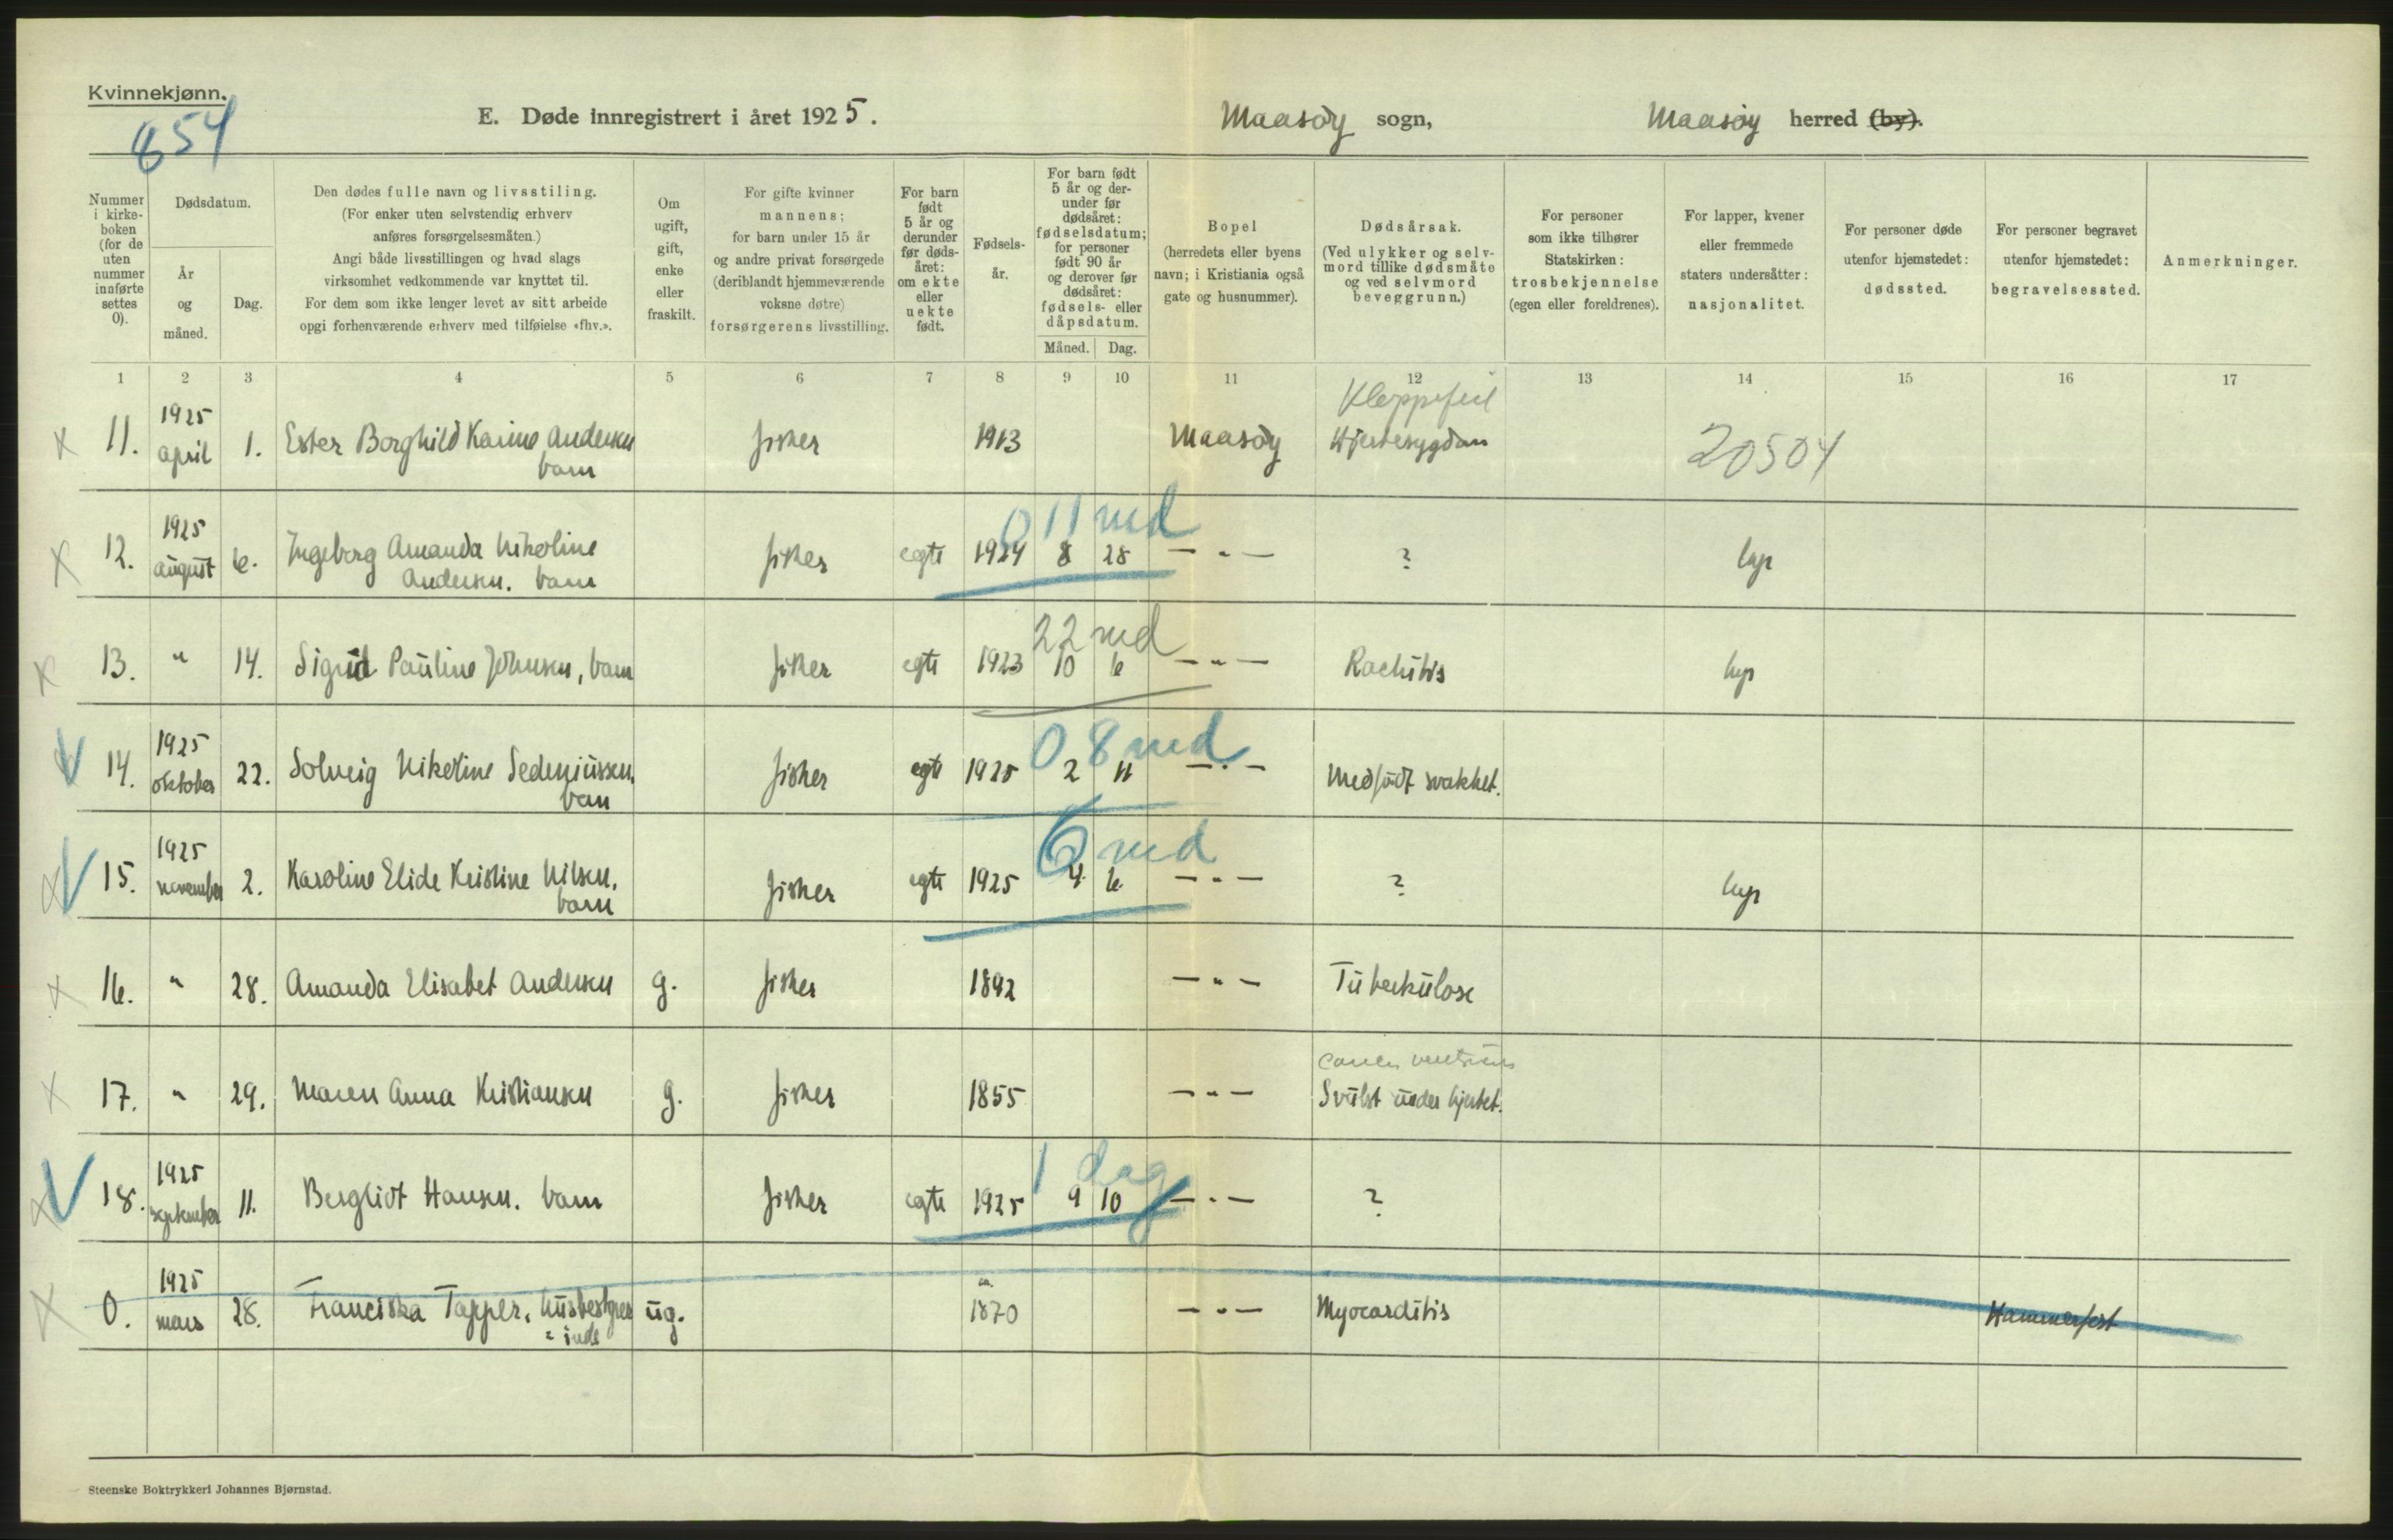 Kvinnekjønn.
854
E. Døde innregistrert i året 1925.
Maasöy sogn,
Maasöy herred (by).
Nummer i kirke-boken (for de uten nummer innførte settes 0).
Dødsdatum.
År og måned.
Dag.
Den dødes fulle navn og livsstiling.
(For enker uten selvstendig erhverv
anføres forsørgelsesmåten.)
Angi både livsstillingen og hvad slags
virksomhet vedkommende var knyttet til.
For dem som ikke lenger levet av sitt arbeide
opgi forhenværende erhverv med tilføielse «fhv.».
Om ugift, gift, enke eller fraskilt.
For gifte kvinner
mannens;
for barn under 15 år
og andre privat forsørgede
(deriblandt hjemmeværende
voksne døtre)
forsørgerens livsstilling.
For barn født 5 år og derunder før døds-året: om ekte eller uekte født.
Fødsels-år.
For barn født 5 år og der-under før dødsåret: fødselsdatum; for personer født 90 år og derover før dødsåret: fødsels- eller dåpsdatum.
Måned. Dag.
Bopel
(herredets eller byens
navn; i Kristiania også
gate og husnummer).
Dødsårsak.
(Ved ulykker og selv-
mord tillike dødsmåte
og ved selvmord
beveggrunn.)
For personer
som ikke tilhører
Statskirken:
trosbekjennelse
(egen eller foreldrenes).
For lapper, kvener
eller fremmede
staters undersåtter:
nasjonalitet.
For personer døde
utenfor hjemstedet:
dødssted.
For personer begravet
utenfor hjemstedet:
begravelsessted.
Anmerkninger.
1 2 3 4 5 6 7 8 9 10 11 12 13 14 15 16 17
Kleppefeil
11. 1925 april 1. Ester Borghild Karine Andersen barn fisker 1913 Maasöy Hjertesygdom 20504
0 11 md
12. 1925 august 6. Ingeborg Amanda Nikoline Andersen. barn fisker egte 1924 8 28 — " — ? lap
22 md
13. " 14. Sigrid Pauline Johnsen, barn fisker egte 1923 10 6 — " — Rachitis lap
0 8 md
14. 1925 oktober 22. Solveig Nikoline Sedeniussen, barn fisker egte 1925 2 11 — " — Medfödt svakhet.
6 md
15. 1925 november 2. Karoline Elide Kristine Nilsen, barn fisker egte 1925 4 6 — " — ? lap
16. " 28. Amanda Elisabet Andersen g. fisker 1892 — " — Tuberkulose
17. " 29. Maren Anna Kristiansen g. fisker 1855 — " — Svulst under hjertet.
1 dag
18. 1925 september 11. Bergliot Hansen. barn fisker egte 1925 9 10 — " — ?
0. 1925 mars 28. Franciska Tapper, husbestyrer = inde ug. 1870 — " — Myocarditis Hammerfest
Steenske Boktrykkeri Johannes Bjørnstad.